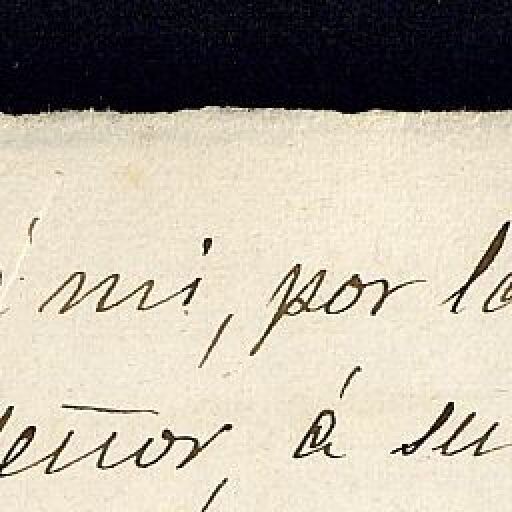 á mi, por la
Señor, á su